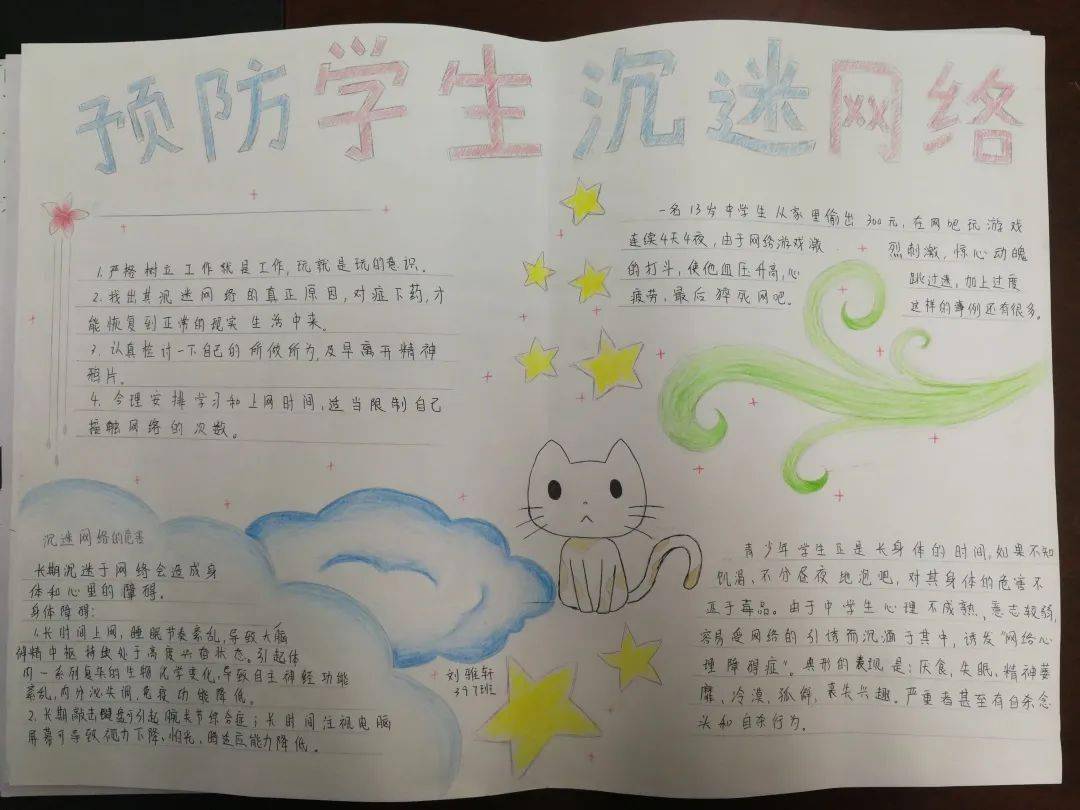 预防学生沉迷网络
1.严格树立工作就是工作,玩就是玩的意识。
2.找出其沉迷网络的真正原因,对症下药,才
能恢复到正常的现实生活中来。
3.认真检讨一下自己的所做所为,及早离开精神
鸦片。
4.合理安排学习和上网时间,适当限制自己
接触网络的次数。
一名13岁中学生从家里偷出300元,在网吧玩游戏
连续4天4夜,由于网络游戏激烈刺激,惊心动魄
的打斗,使他血压升高,心跳过速,加上过度
疲劳,最后猝死网吧。这样的事例还有很多。
沉迷网络的危害
长期沉迷于网络会造成身
体和心里的障碍。
身体障碍:
1.长时间上网,睡眠节奏紊乱,导致大脑
神精中枢持续处于高度兴奋状态。引起体
内一系列复杂的生物化学变化,导致自主神经功能
紊乱,内分泌失调,免疫功能降低。
2.长期敲击键盘可引起腕关节综合症;长时间注视电脑
屏幕可导致视力下降、怕光、暗适应能力降低。
刘雅轩
397班
青少年学生正是长身体的时间,如果不知
饥渴、不分昼夜地泡吧,对其身体的危害不
亚于毒品。由于中学生心理不成熟、意志较弱,
容易受网络的引诱而沉湎于其中,诱发“网络心
理障碍症”。典形的表现是:厌食、失眠、精神萎
靡、冷漠、孤僻,丧失兴趣。严重者甚至有自杀念
头和自杀行为。